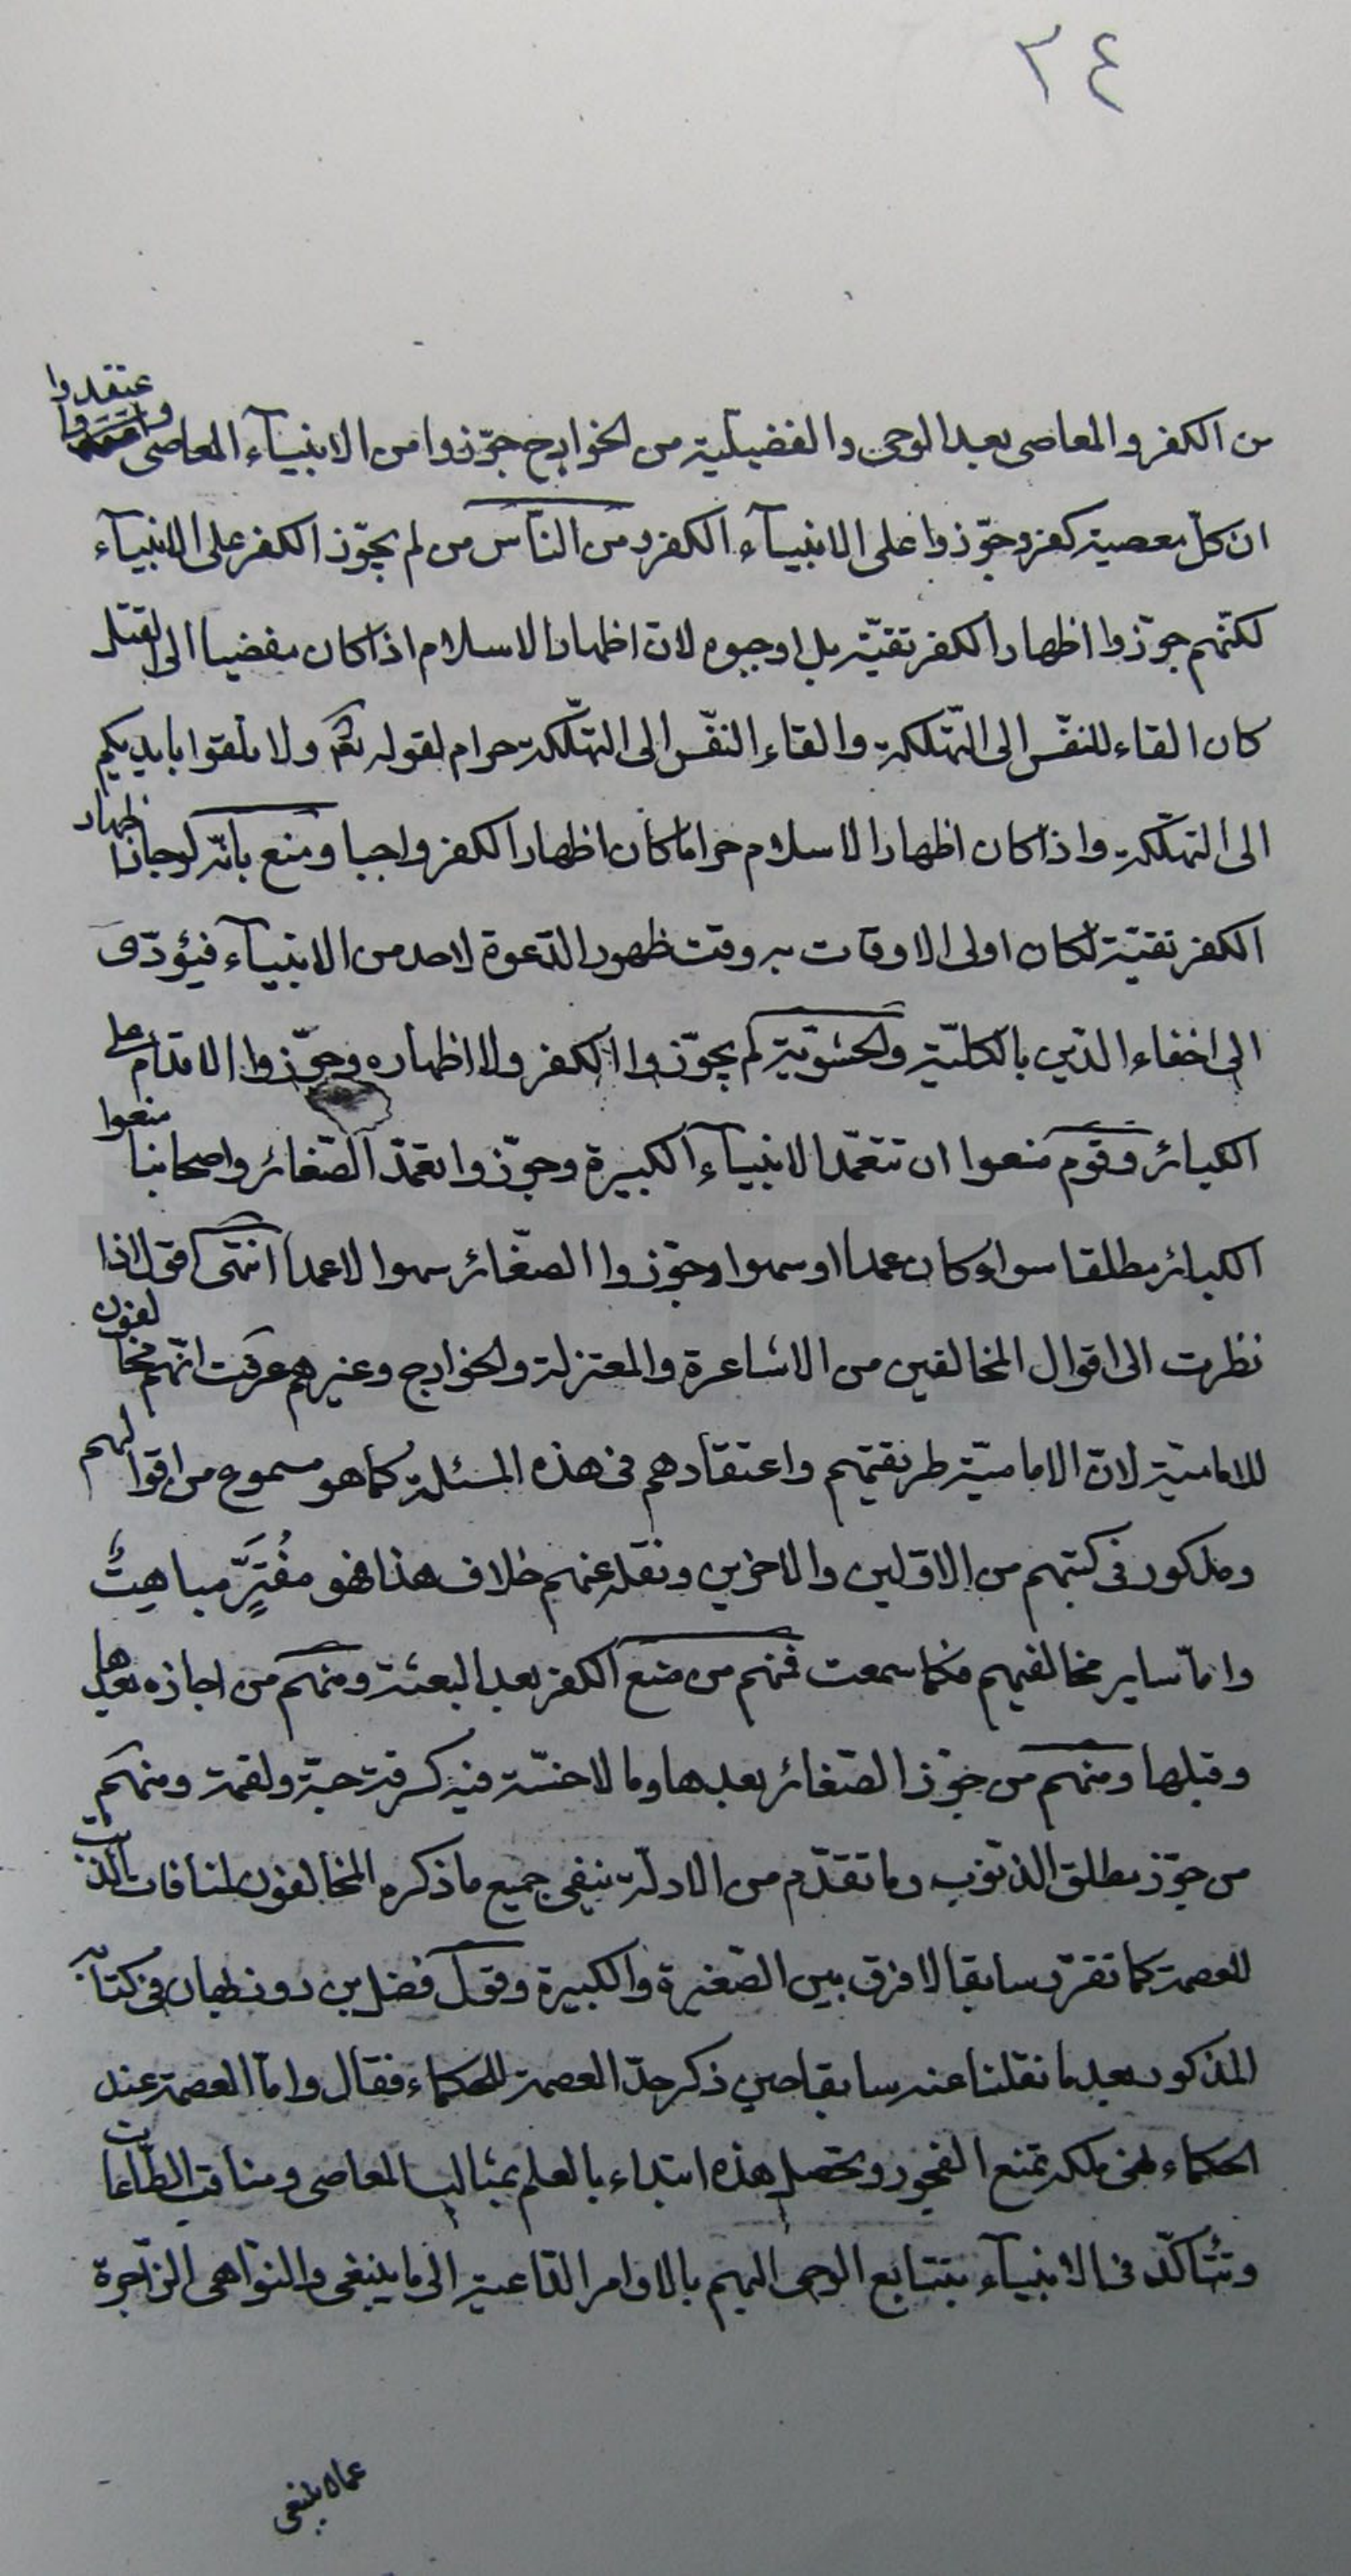 ٣٤
من الكفر والمعاصى بعد الوحى والفضيلية من الخوارج جوّزوا من الانبيآء المعاصى واعتقدوا
ان كلّ معصية كفر وجوّزوا على الانبيآء الكفر ومن النّاس من لم يجوّز الكفر على الانبيآء
لكنّهم جوّزوا اظهار الكفر تقيّة بل اوجبوه لان اظهار الاسلام اذا كان مفضيا الى القتل
كان القاء للنفس الى التّهلكة والقاء النفس الى التهلكة حرام لقوله تعالى ولا تلقوا بايديكم
الى التهلكة واذا كان اظهار الاسلام حراما كان اظهار الكفر واجبا ومنع بانّه لو جاز اظهار
الكفر تقيّة لكان اولى الاوقات به وقت ظهور الدّعوة لاحد من الانبيآء فيؤدّى
الى اخفاء الدّين بالكليّة والحشويّة لم يجوّزوا الكفر ولا اظهاره وجوّزوا الاقدام على
الكبائر وقوم منعوا ان تتعمّد الانبيآء الكبيرة وجوّزوا تعمّد الصّغائر واصحابنا منعوا
الكبائر مطلقا سواء كان عمدا او سهوا وجوّزوا الصغّائر سهوا لا عمدا انتهى اقول اذا
نظرت الى اقوال المخالفين من الاشاعرة والمعتزلة والخوارج وغيرهم عرفت انّهم مخالفون
للامامية لانّ الامامية طريقتهم واعتقادهم فى هذه المسئلة كما هو مسموع من اقوالهم
ومذكور فى كتبهم من الاوّلين والاخرين ونقله عنهم خلاف هذا فهو مفُترٍّ مباهِتٌ
وامّا ساير مخالفيهم فكما سمعت فمنهم من منع الكفر بعد البعثة ومنهم من اجازه بعدها
وقبلها ومنهم من جوّز الصّغائر بعدها وما لا خسّة فيه كسرقة حبّة ولقمة ومنهم
من جوّز مطلق الذنوب وما تقدّم من الادلّة ينفى جميع ما ذكره المخالفون لمنافات الذّنب
للعصمة كما تقرّر سابقا لا فرق بين الصّغيرة والكبيرة وقول فضل بن روزبهان فى كتابه
المذكور بعد ما نقلنا عنه سابقا حين ذكر حدّ العصمة للحكماء فقال وامّا العصمة عند
الحكماء فهى ملكة تمنع الفجور وتحصل هذه ابتداء بالعلم بمثالب المعاصى ومناقب الطّاعات
وتتأكّد فى الانبيآء بتتابع الوحى اليهم بالاوامر الدّاعية الى ما ينبغى والنّواهى الزّاجرة
عمّا لا ينبغى